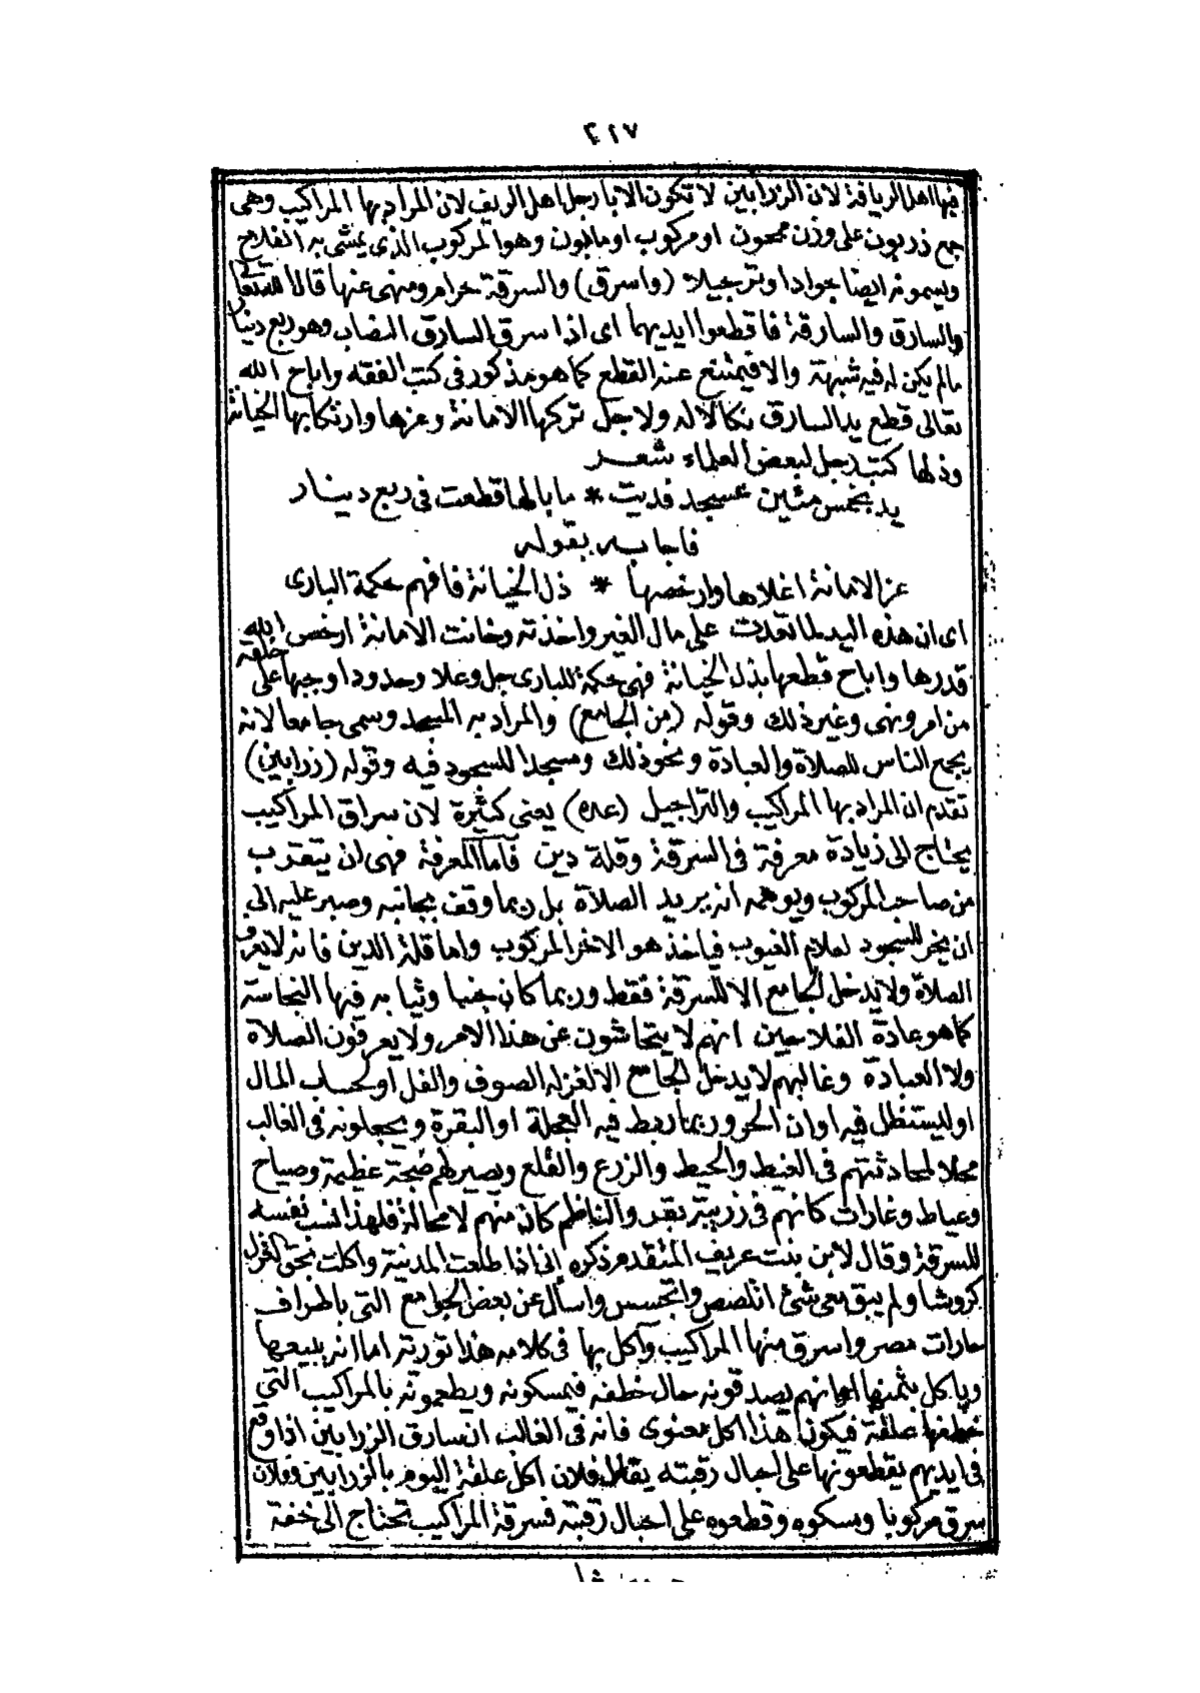 ٢١٧
فيها اهل الريافة لان الزرابين لا تكون الا بارجل اهل الريف لان المراد بها المراكيب وهى
جمع زربون على وزن مجحون او مركوب او مابون وهو المركوب الذى يمشى به الفلاح
ويسمونه ايضا جوادا وترجيلا (واسرق) والسرقة حرام ومنهى عنها قال الله تعالى
والسارق والسارقة فاقطعوا ايديهما اى اذا سرق السارق النصاب وهو ربع دينار
مالم يكن له فيه شبهة والا فيمتنع عنه القطع كما هو مذكور فى كتب الفقه واباح الله
تعالى قطع يد السارق نكالا له ولاجل تركها الامانة وعزها وارتكابها الخيانة
وذلها كتب رجل لبعض العلماء شعر
يد بخمس مئين عسجد فديت * ما بالها قطعت فى ربع دينار
فاجابه بقوله
عز الامانة اغلاها وارخصها * ذل الخيانة فافهم حكمة البارى
اى ان هذه اليد لما تعدت على مال الغير واخذته وخانت الامانة ارخص الله
قدرها واباح قطعها بذل الخيانة فهى حكمة للبارى جل وعلا وحدود اوجبها على خلقه
من امر ونهى وغير ذلك وقوله (من الجامع) والمراد به المسجد وسمى جامعا لانه
يجمع الناس للصلاة والعبادة ونحو ذلك ومسجدا للسجود فيه وقوله (زرابين)
تقدم ان المراد بها المراكيب والتراجيل (عده) يعنى كثيرة لان سراق المراكيب
يحتاج الى زيادة معرفة فى السرقة وقلة دين فاما المعرفة فهى ان يتقرب
من صاحب المركوب ويوهمه انه يريد الصلاة بل ربما وقف بجانبه وصبر عليه الى
ان يخر للسجود لعلام الغيوب فياخذ هو الاخر المركوب واما قلة الدين فانه لا يعرف
الصلاة ولا يدخل الجامع الا للسرقة فقط وربما كان جنبا وثيابه فيها النجاسة
كما هو عادة الفلاحين انهم لا يتحاشون عن هذا الامر ولا يعرفون الصلاة
ولا العبادة وغالبهم لا يدخل الجامع الا لغزله الصوف والفل او لحساب المال
او ليستظل فيه اوان الحر وربما ربط فيه العجلة او البقرة ويجعلونه فى الغالب
محلا لمحادثتهم فى الغيط والحيط والزرع والقلع ويصير لهم ضجة عظيمة وصياح
وعياط وغارات كانهم فى زريبة بقر والناظم كان منهم لا محالة فلهذا نسب نفسه
للسرقة وقال لابن بنت عريف المتقدم ذكره انى اذا طلعت المدينة واكلت بحق الغزل
كروشا ولم يبق معى شئ اتلصص واتجسس واسأل عن بعض الجوامع التى باطراف
حارات مصر واسرق منها المراكيب وآكل بها فى كلامه هذا تورته اما انه يبيعها
وياكل بثمنها او انهم يصدقونه حال خطفه فيمسكونه ويطعموته بالمراكيب التى
خطفها علقة فيكون هذا اكل معنوى فانه فى الغالب ان سارق الزرابين اذا وقع
فى ايديهم يقطعونها على احبال رقبته يقال فلان اكل علقة اليوم بالزرابين وفلان
سرق مركوبا ومسكوه وقطعوه على احبال رقبته فسرقة المراكيب تحتاج الى خفة